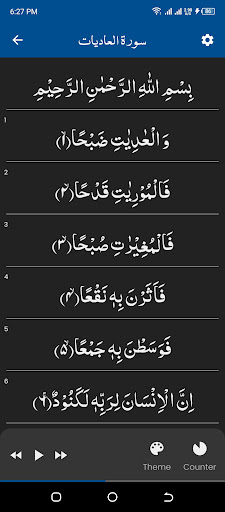 6:27 PM
سورة العاديات
بِسْمِ اللهِ الرَّحْمٰنِ الرَّحِيْمِ
1
وَالْعٰدِيٰتِ ضَبْحًا ﴿۱﴾
2
فَالْمُوْرِيٰتِ قَدْحًا ﴿۲﴾
3
فَالْمُغِيْرٰتِ صُبْحًا ﴿۳﴾
4
فَاَثَرْنَ بِهٖ نَقْعًا ﴿۴﴾
5
فَوَسَطْنَ بِهٖ جَمْعًا ﴿۵﴾
6
اِنَّ الْاِنْسَانَ لِرَبِّهٖ لَكَنُوْدٌ ﴿۶﴾
Theme Counter